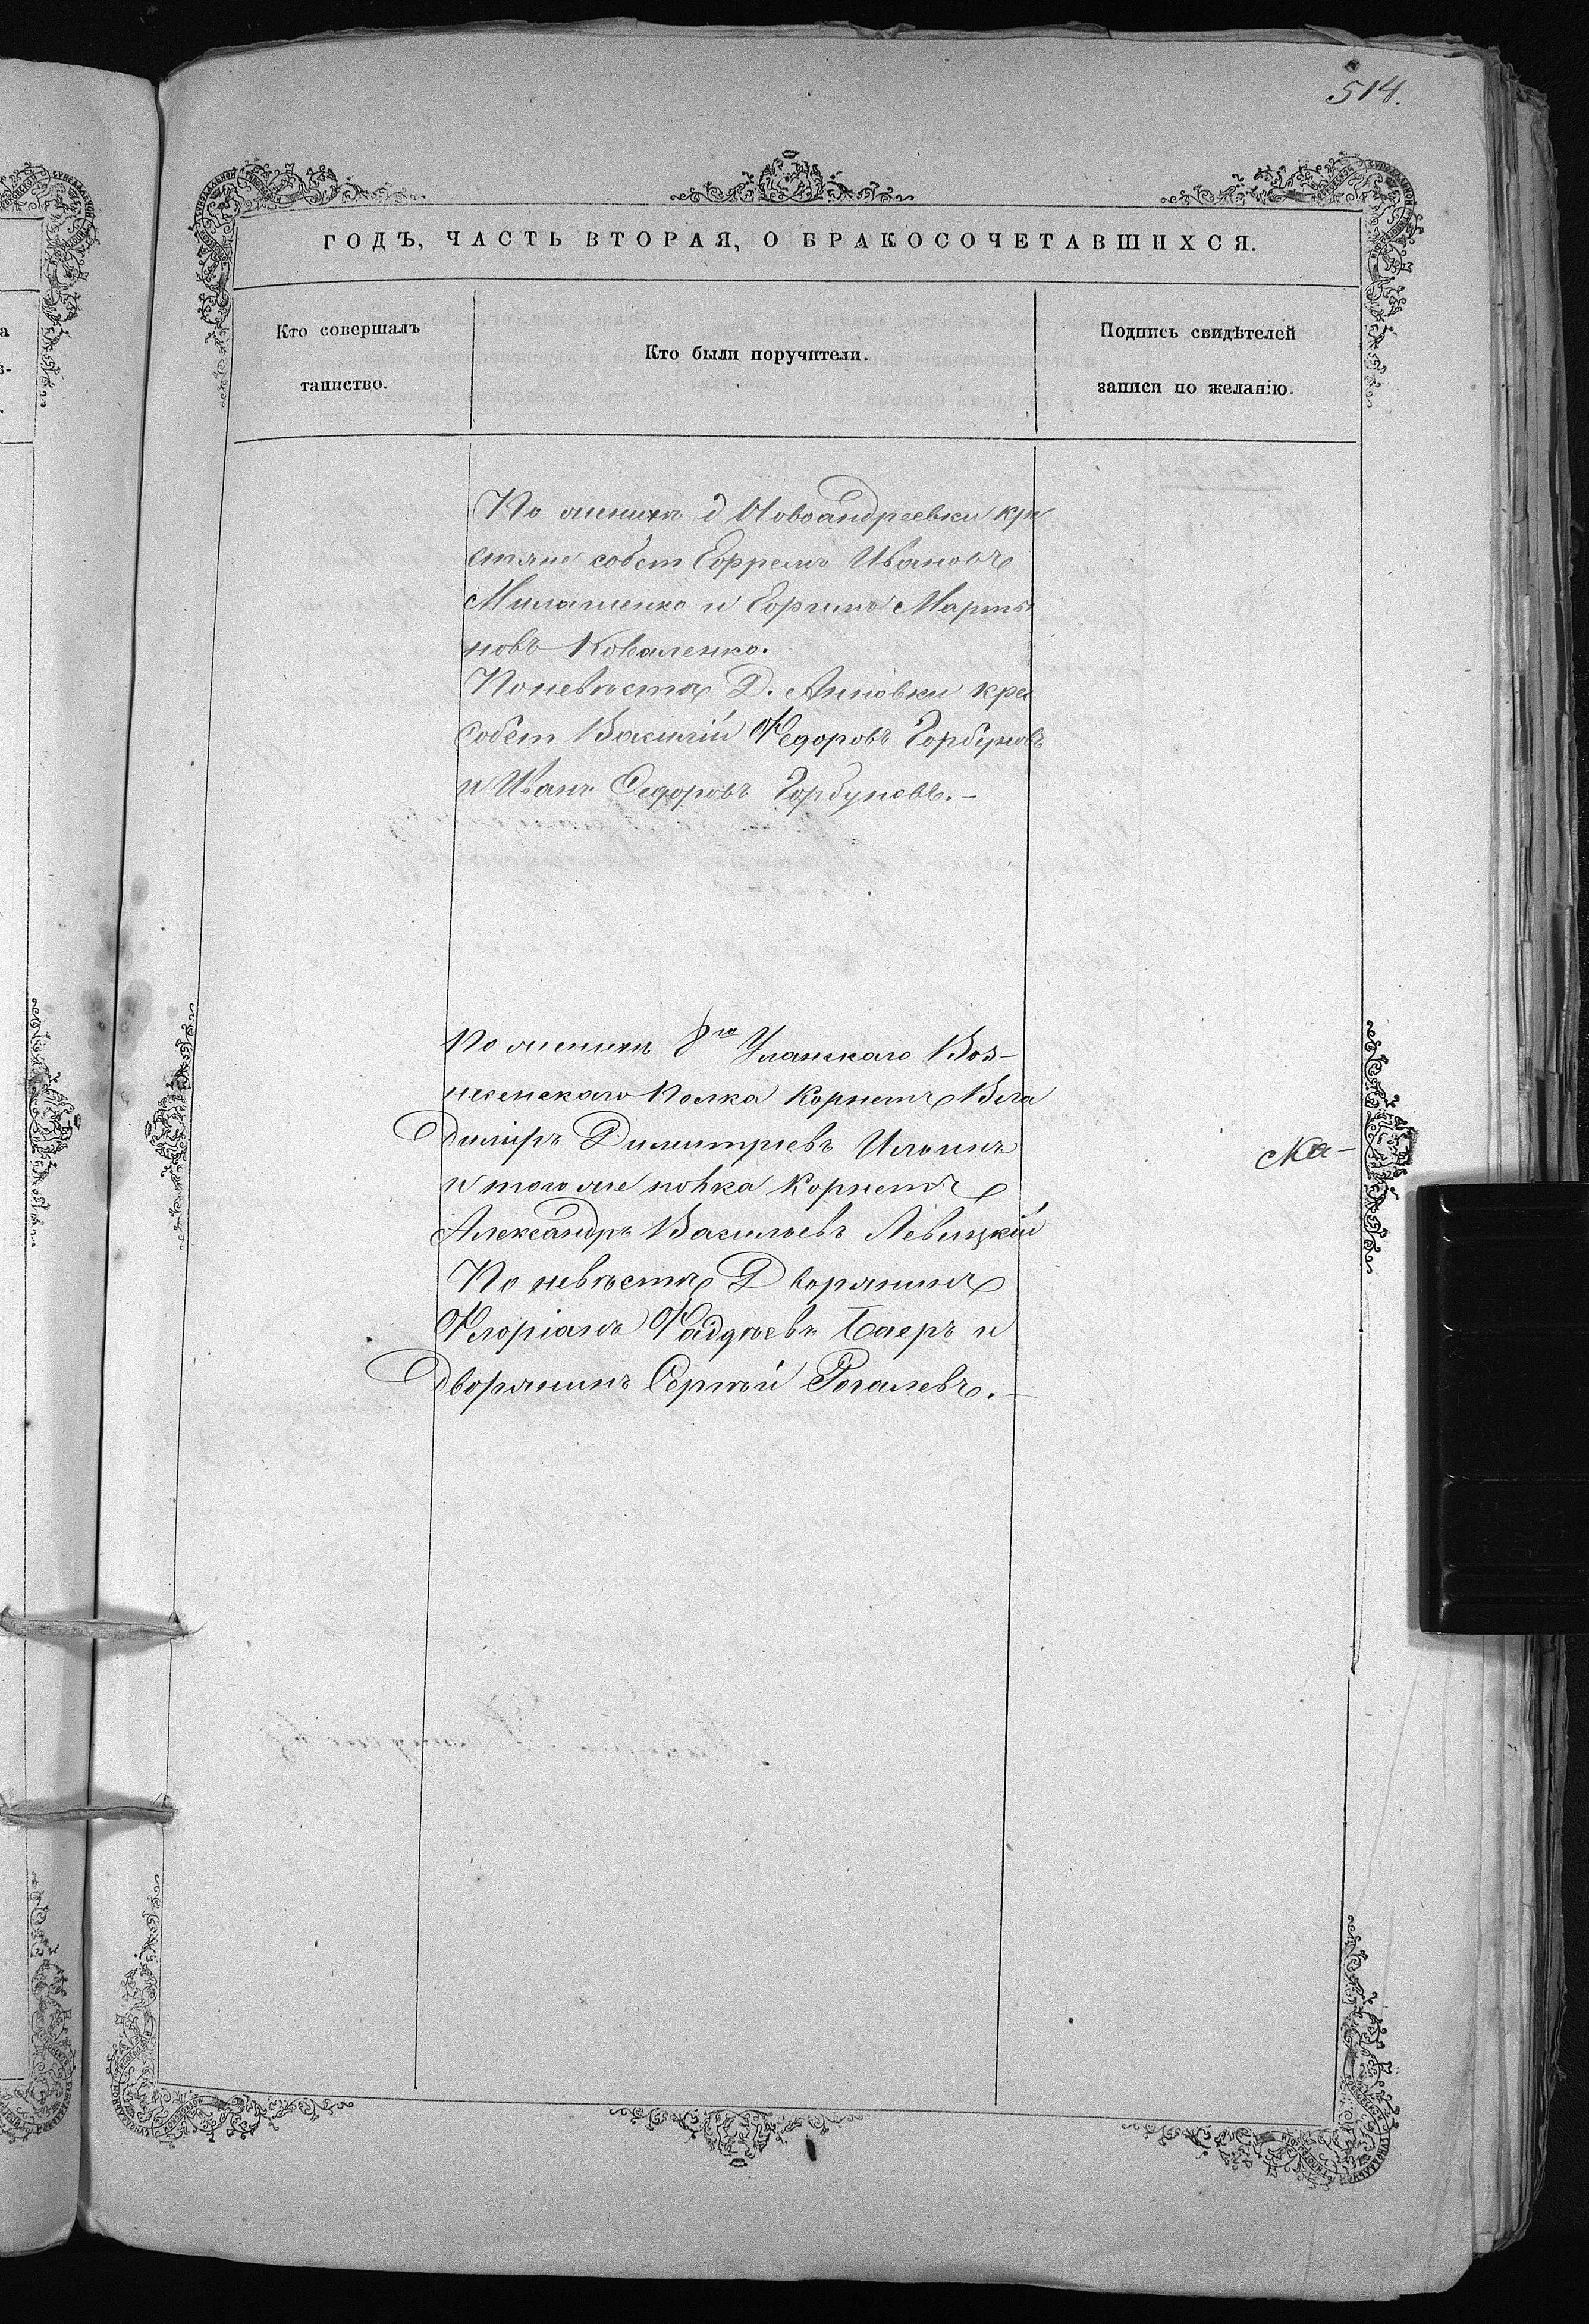 514.
ГОДЪ, ЧАСТЬ ВТОРАЯ, О БРАКОСОЧЕТАВШИХСЯ.
Кто совершалъ
таинство.
Кто были поручители.
Подпись свидѣтелей
записи по желанію.
По женихѣ д Новоандреевки кре
стяне собст Ефремъ Ивановъ
Милашенко и Ефимъ Марты
новъ Коваленко.
По невѣстѣ Д. Анновки кре
собст Василій Федоровъ Горбуновъ
и Иванъ Федоровъ Горбуновъ.-
По женихѣ 8го Уланскаго Воз-
несенскаго Полка Корнетъ Вла
диміръ Димитріевъ Иловичъ
и того же полка Корнетъ
Александръ Васильевъ Левицкій
По невѣстѣ Дворянинъ
Флоріанъ Фаддѣевъ Баеръ и
дворянинъ Сергѣй Рогалевъ.-